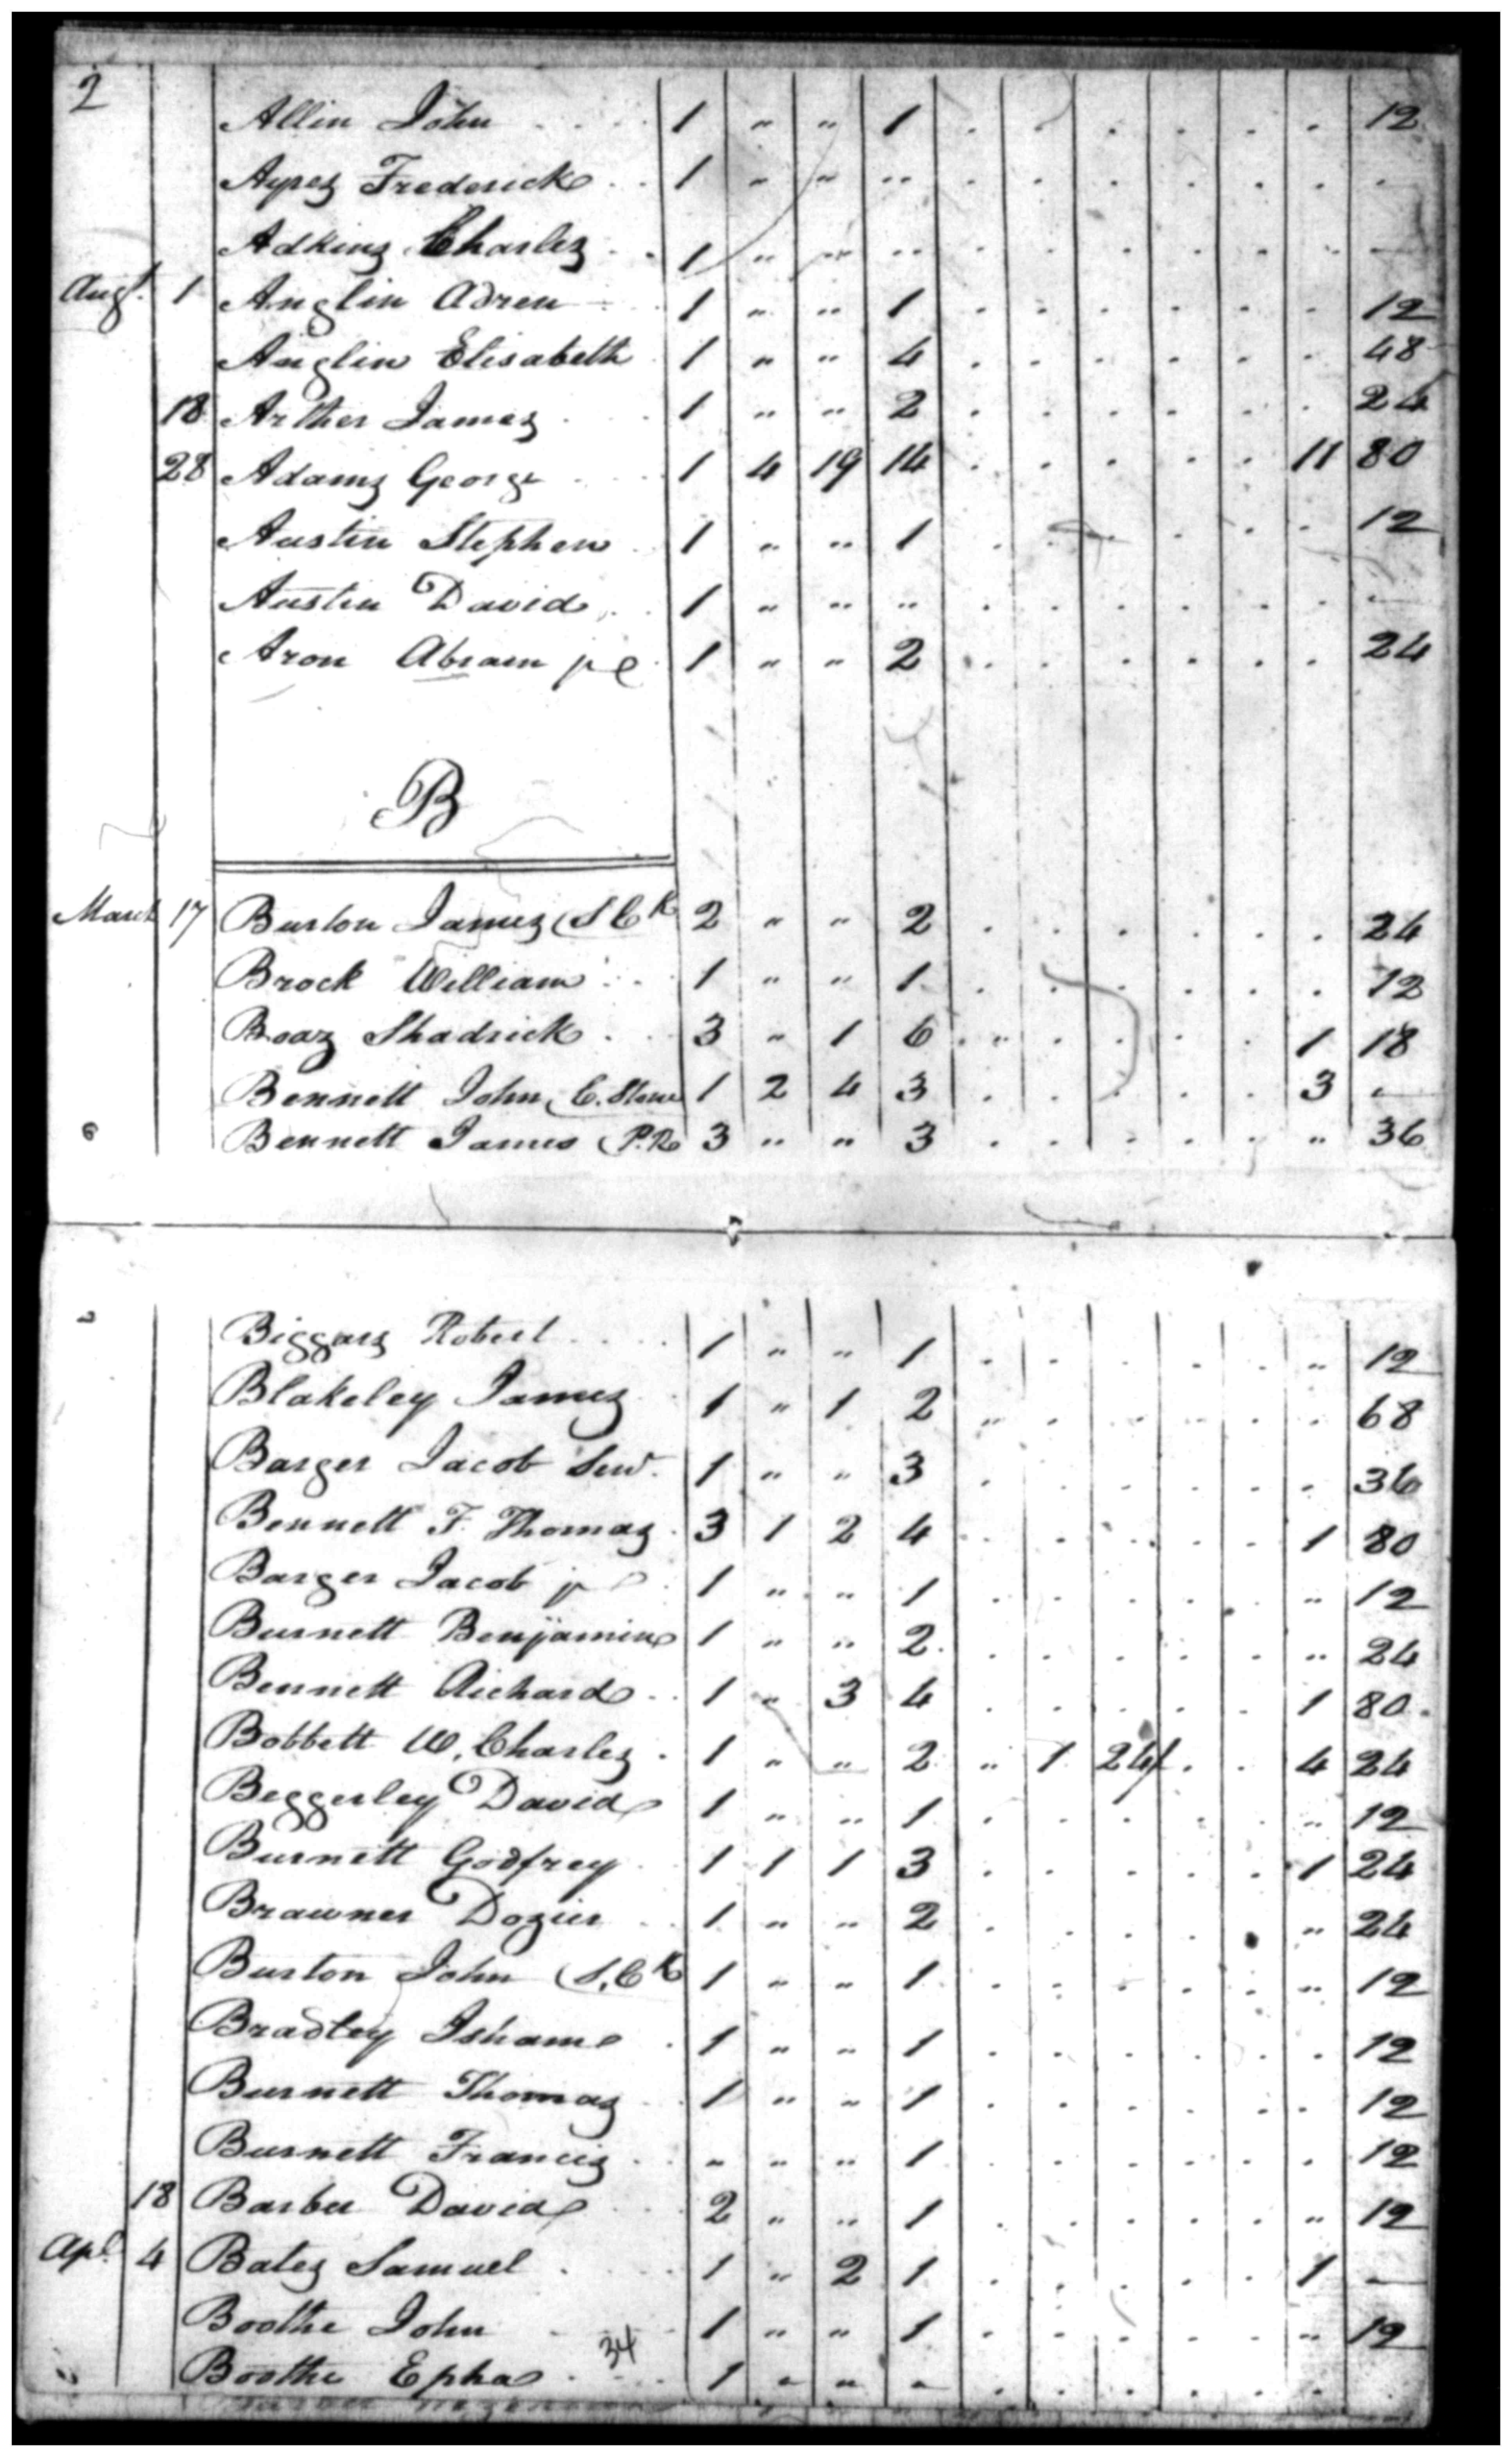 2
Allin John 1 " " 1 . . . . . . 12
Ayres Frederick 1 " " " . . . . . . .
Adkins Charles 1 " " " . . . . . . —
Augt. 1 Anglin Adren 1 " " 1 . . . . . . 12
Anglin Elisabeth 1 " " 4 . . . . . . 48
18 Arther James 1 " " 2 . . . . . . 24
28 Adams George 1 4 19 14 . . . . . 11 80
Austin Stephen 1 " " 1 . . . . . . 12
Austin David 1 " " " . . . . . . —
Aron Abram jr 1 " " 2 . . . . . . 24
B
March 17 Burton James (S Ck 2 " " 2 . . . . . . 24
Brock William 1 " " 1 . . . . . . 12
Boaz Shadrick 3 " 1 6 . . . . . 1 18
Bennett John, C. 1 2 4 3 . . . . . 3 —
Bennett James (P.R 3 " " 3 . . . . . " 36
Biggars Robert 1 " " 1 . . . . . " 12
Blakeley James 1 " 1 2 " . . . . . 68
Barger Jacob Senr. 1 " " 3 . . . . . . 36
Bennett F. Thomas 3 1 2 4 . . . . . 1 80
Barger Jacob jr 1 " " 1 . . . . . " 12
Burnett Benjamin 1 " " 2 . . . . . " 24
Bennett Richard 1 " 3 4 . . . . . 1 80
Bobbett W. Charles 1 " " 2 " 1 24 . . 4 24
Beggerley David 1 " " 1 . . . . . " 12
Burnett Godfrey 1 1 1 3 . . . . . 1 24
Brawner Dozier 1 " " 2 . . . . . " 24
Burton John (S. Ck 1 " " 1 . . . . . " 12
Bradley Isham 1 " " 1 . . . . . . 12
Burnett Thomas 1 " " 1 . . . . . . 12
Burnett Francis " " " 1 . . . . . . 12
18 Barber David 2 " " 1 . . . . . " 12
Apl. 4 Bates Samuel 1 " 2 1 . . . . . 1 —
Boothe John 1 " " 1 . . . . . " 12
34
Boothe Epha 1 " " " . . . . . .